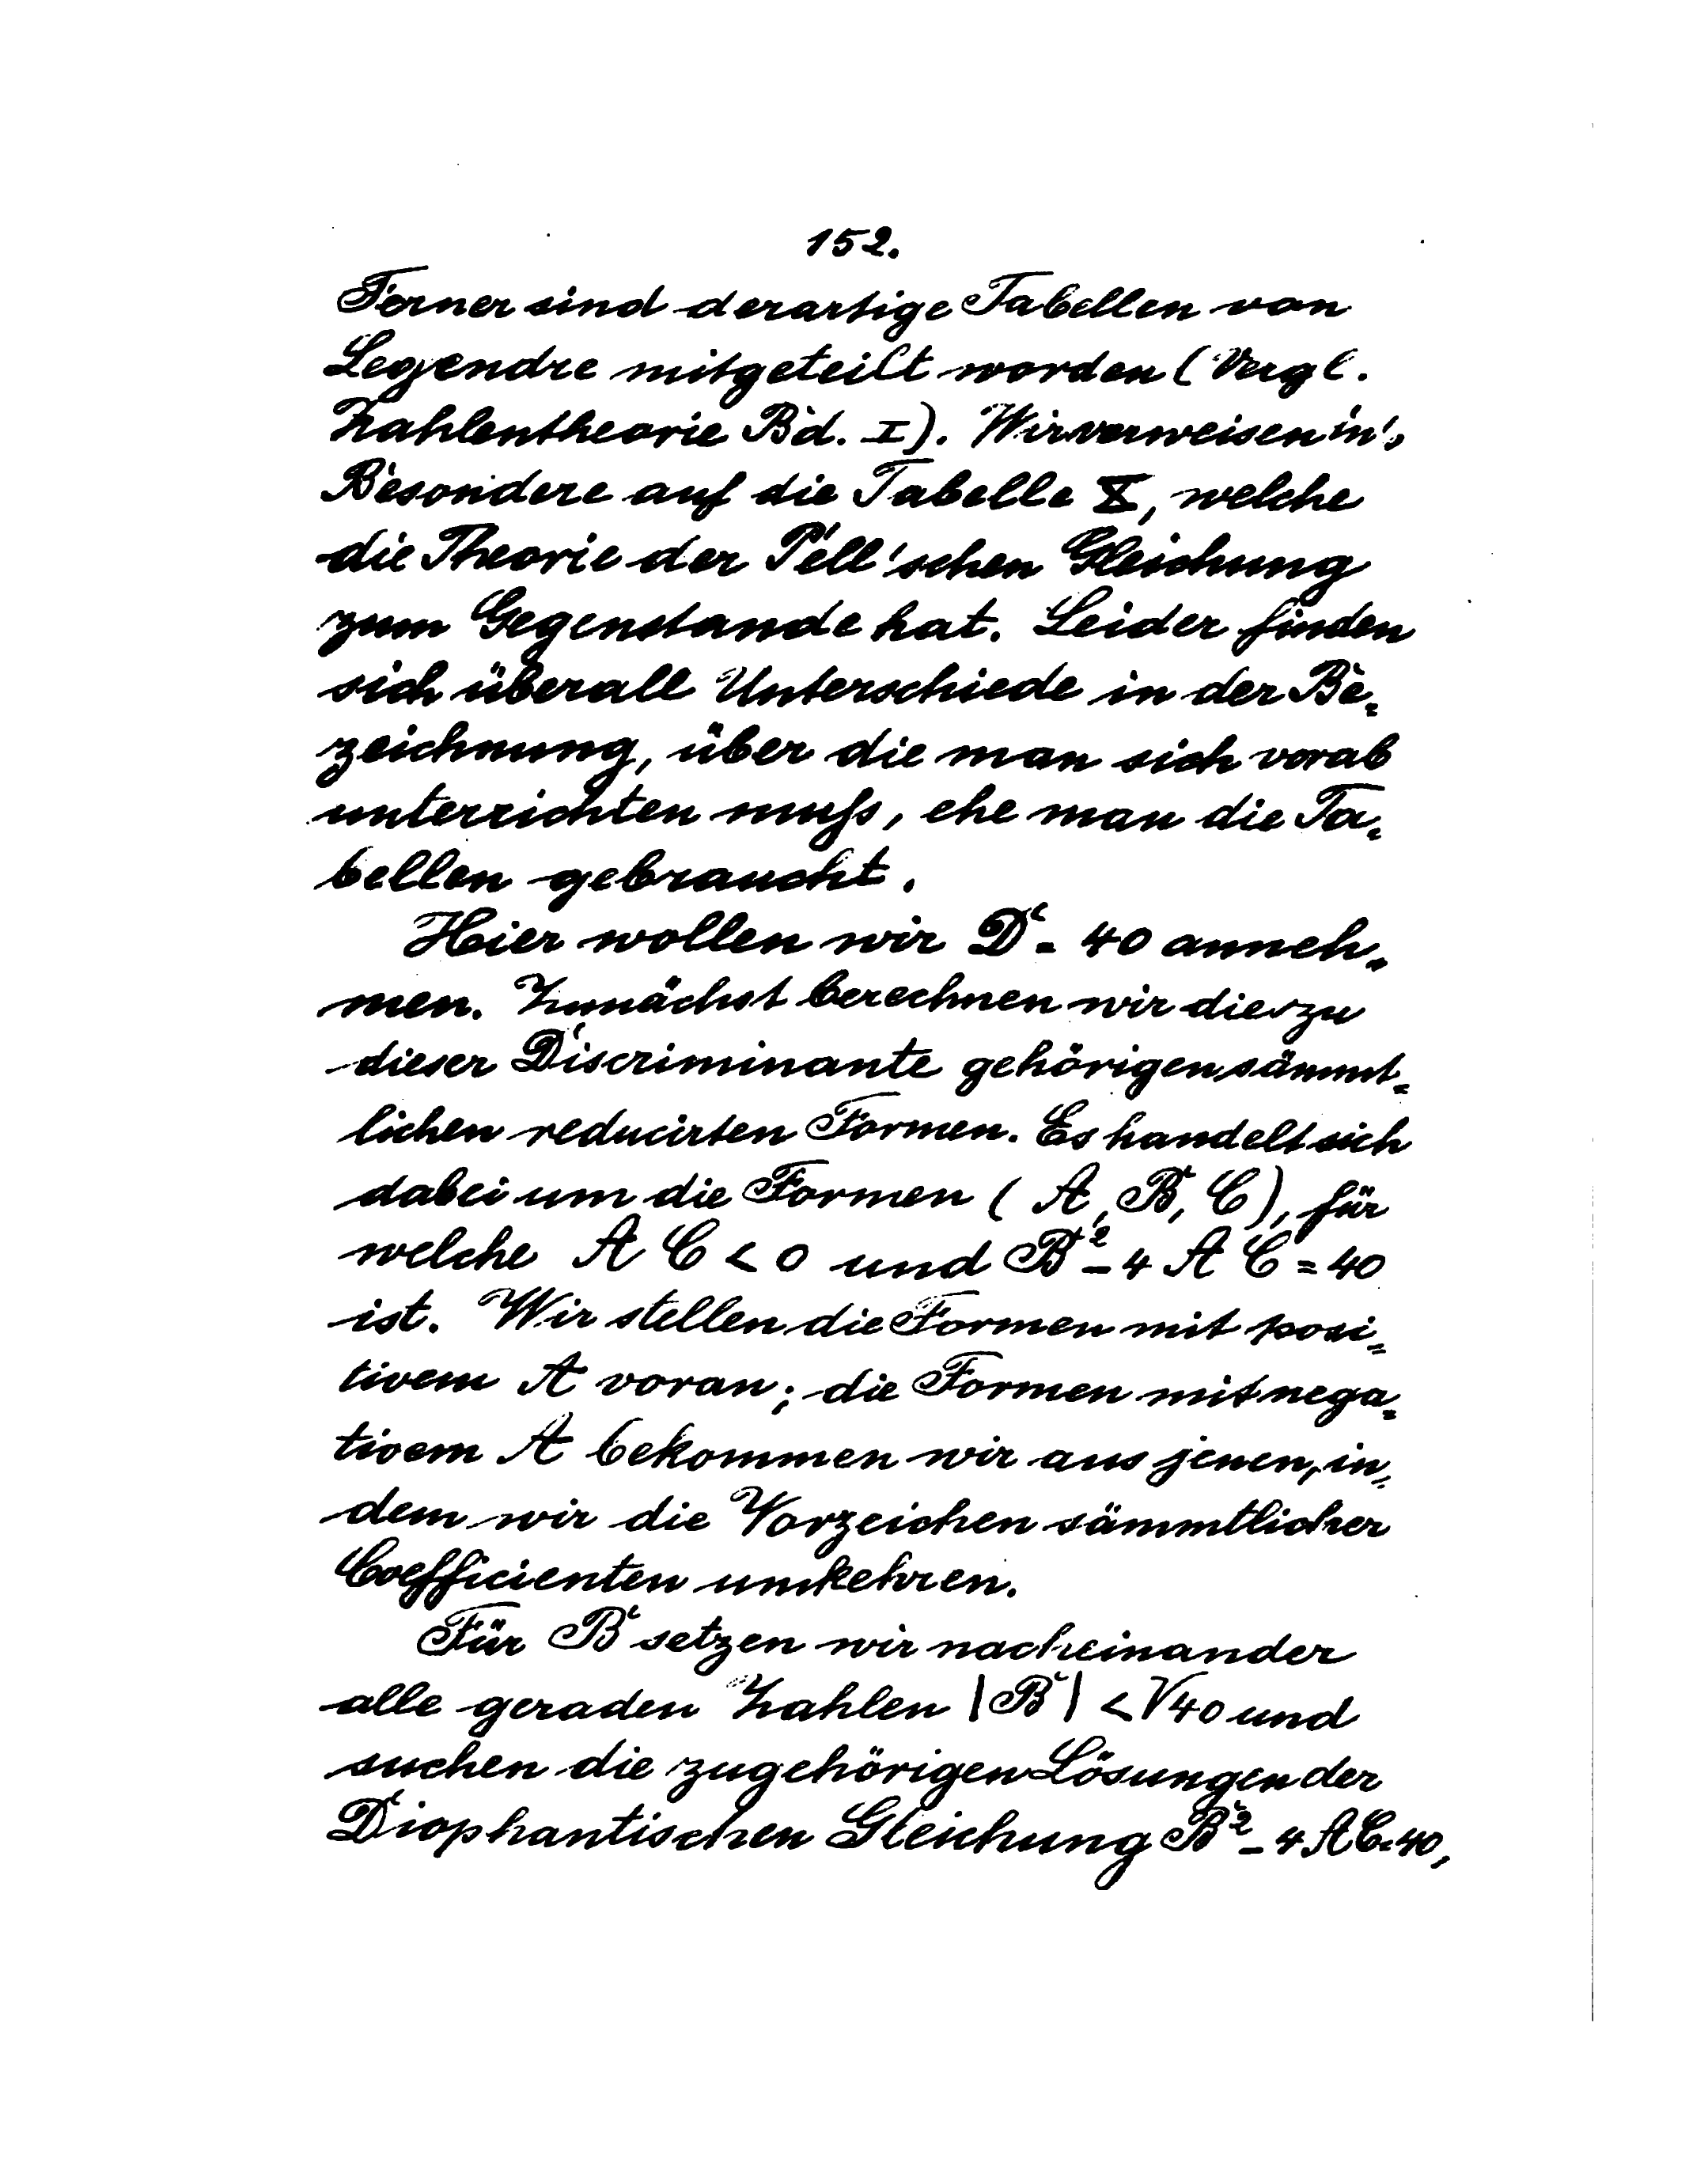 152.
Ferner sind derartige Tabellen von
Legendre mitgeteilt worden (Vergl.
Zahlentheorie Bd. I). Wir verweisen in's
Besondere auf die Tabelle X, welche
die Theorie der Pell'schen Gleichung
zum Gegenstande hat. Leider finden
sich überall Unterschiede in der Be=
zeichnung, über die man sich vorab
unterrichten muß, ehe man die Ta=
bellen gebraucht.
Hier wollen wir D = 40 anneh=
men. Zunächst berechnen wir die zu
dieser Discriminante gehörigen sämmt=
lichen reducirten Formen. Es handelt sich
dabei um die Formen (A, B, C), für
welche A C < 0 und B² - 4 A C = 40
ist. Wir stellen die Formen mit posi=
tivem A voran; die Formen mit nega=
tivem A bekommen wir aus jenen, in=
dem wir die Vorzeichen sämmtlicher
Coefficienten umkehren.
Für B setzen wir nacheinander
alle geraden Zahlen |B| < √40 und
suchen die zugehörigen Lösungen der
Diophantischen Gleichung B² - 4 A C = 40,